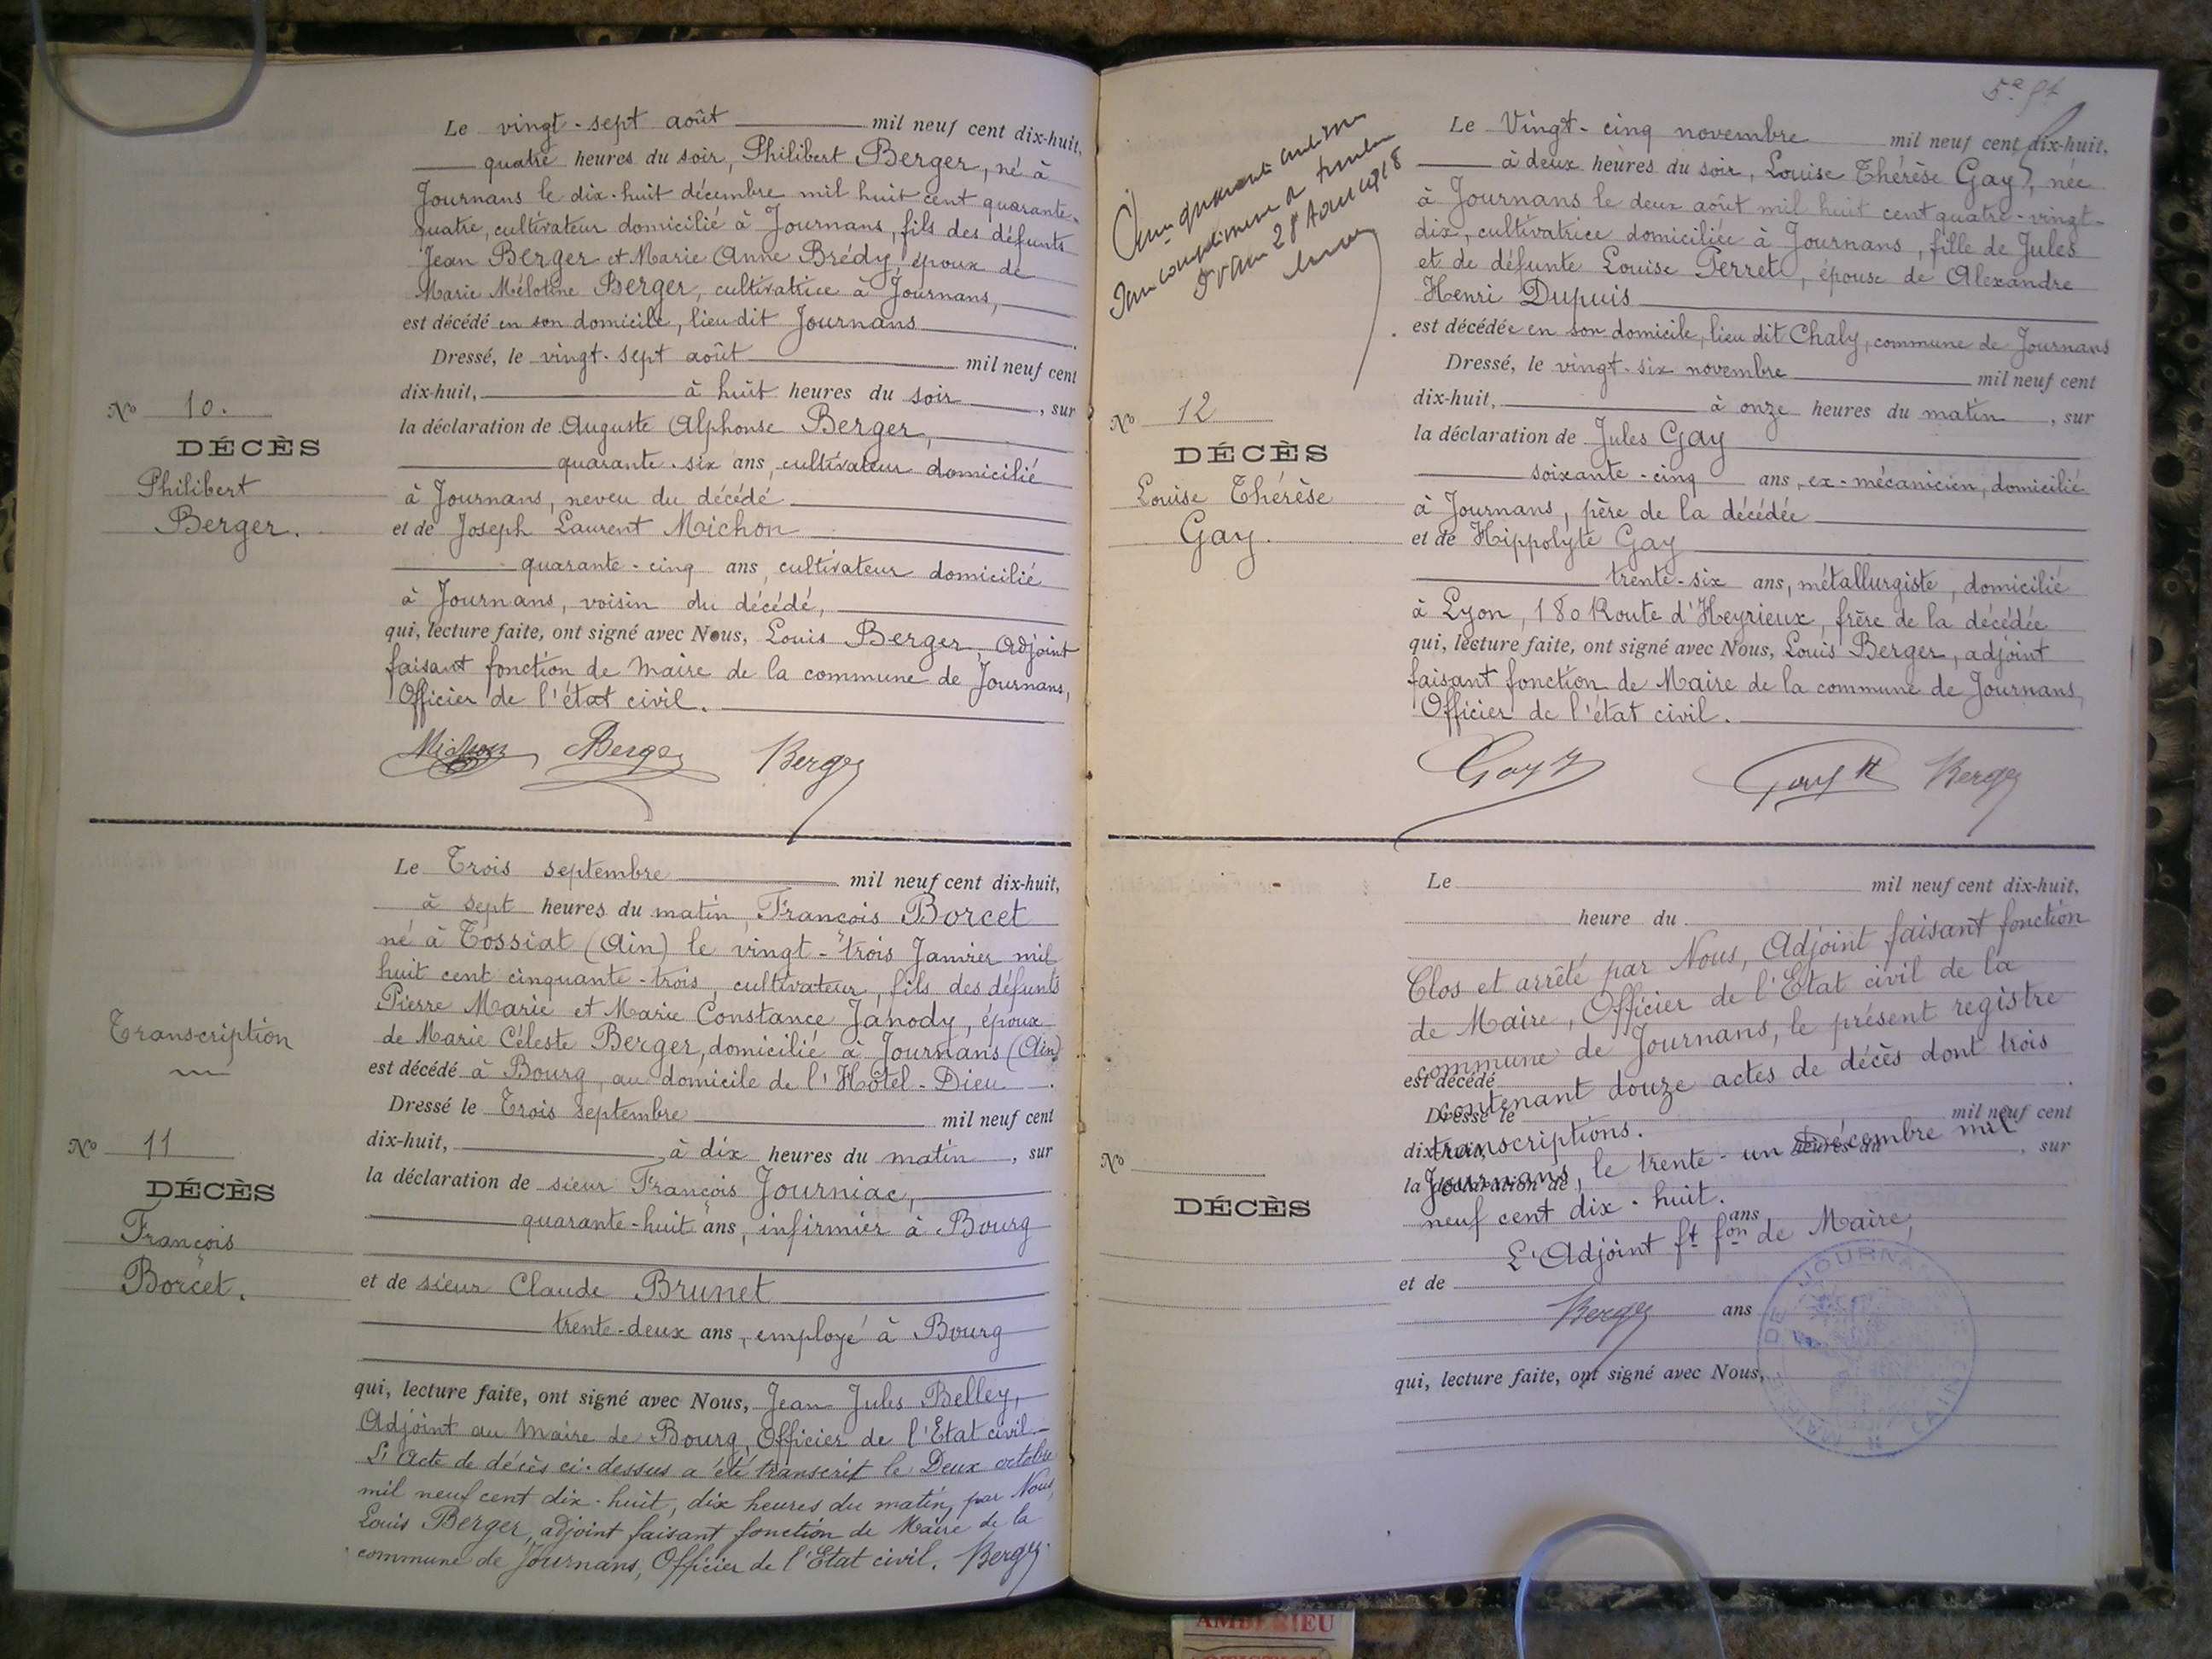 Le vingt-sept août mil neuf cent dix-huit,
quatre heures du soir, Philibert Berger, né à
Journans le dix-huit décembre mil huit cent quarante-
quatre, cultivateur domicilié à Journans, fils des défunts
Jean Berger et Marie Anne Brédy, époux de
Marie Mélotine Berger, cultivatrice à Journans,
est décédé en son domicile, lieu dit Journans.
Dressé, le vingt-sept août mil neuf cent
dix-huit, à huit heures du soir, sur
la déclaration de Auguste Alphonse Berger,
quarante-six ans, cultivateur domicilié
à Journans, neveu du décédé
et de Joseph Laurent Michon
quarante-cinq ans, cultivateur domicilié
à Journans, voisin du décédé,
qui, lecture faite, ont signé avec Nous, Louis Berger, Adjoint
faisant fonction de Maire de la commune de Journans,
Officier de l'état civil.
Michon Berger Berger
No 10.
DÉCÈS
Philibert
Berger.
Le Trois septembre mil neuf cent dix-huit,
à sept heures du matin, François Borcet
né à Tossiat (Ain) le vingt-trois Janvier mil
huit cent cinquante-trois, cultivateur, fils des défunts
Pierre Marie et Marie Constance Janody, époux
de Marie Céleste Berger, domicilié à Journans (Ain)
est décédé à Bourg, au domicile de l'Hôtel-Dieu.
Dressé le Trois septembre mil neuf cent
dix-huit, à dix heures du matin, sur
la déclaration de sieur François Journiac,
quarante-huit ans, infirmier à Bourg
et de sieur Claude Brunet
trente-deux ans, employé à Bourg
qui, lecture faite, ont signé avec Nous, Jean Jules Belley,
Adjoint au Maire de Bourg, Officier de l'Etat civil.
L'Acte de décès ci-dessus a été transcrit le Deux octobre
mil neuf cent dix-huit, dix heures du matin, par Nous,
Louis Berger, adjoint faisant fonction de Maire de la
commune de Journans, Officier de l'Etat civil. Berger
Transcription
No 11
DÉCÈS
François
Borcet.
28 Aout 1918
Le Vingt-cinq novembre mil neuf cent dix-huit,
à deux heures du soir, Louise Thérèse Gay, née
à Journans le deux août mil huit cent quatre-vingt-
dix, cultivatrice domiciliée à Journans, fille de Jules
et de défunte Louise Perret, épouse de Alexandre
Henri Dupuis
est décédée en son domicile, lieu dit Chaly, commune de Journans.
Dressé, le vingt-six novembre mil neuf cent
dix-huit, à onze heures du matin, sur
la déclaration de Jules Gay
soixante-cinq ans, ex-mécanicien, domicilié
à Journans, père de la décédée
et de Hippolyte Gay
trente-six ans, métallurgiste, domicilié
à Lyon, 180 Route d'Heyrieux, frère de la décédée
qui, lecture faite, ont signé avec Nous, Louis Berger, adjoint
faisant fonction de Maire de la commune de Journans,
Officier de l'état civil.
Gay Gay H Berger
No 12
DÉCÈS
Louise Thérèse
Gay.
Le mil neuf cent dix-huit,
heure du
Clos et arrêté par Nous, Adjoint faisant fonction
de Maire, Officier de l'Etat civil de la
commune de Journans, le présent registre
est décédé
contenant douze actes de décès dont trois
Dressé le mil neuf cent
transcriptions.
dix-huit, heures du, sur
Journans, le trente-un Décembre mil
la déclaration de
neuf cent dix-huit.
ans
L'Adjoint ft fon de Maire,
et de
Berger
ans
qui, lecture faite, ont signé avec Nous,
No
DÉCÈS
MAIRIE DE JOURNANS (AIN)
AMBERIEU